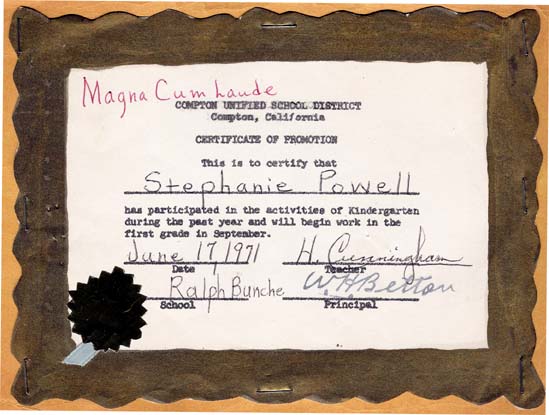 Magna Cum Laude
COMPTON UNIFIED SCHOOL DISTRICT
Compton, California
CERTIFICATE OF PROMOTION
This is to certify that
Stephanie Powell
has participated in the activities of Kindergarten
during the past year and will begin work in the
first grade in September.
June 17, 1971 H. Cunningham
Date Teacher
Ralph Bunche W H Betton
School Principal